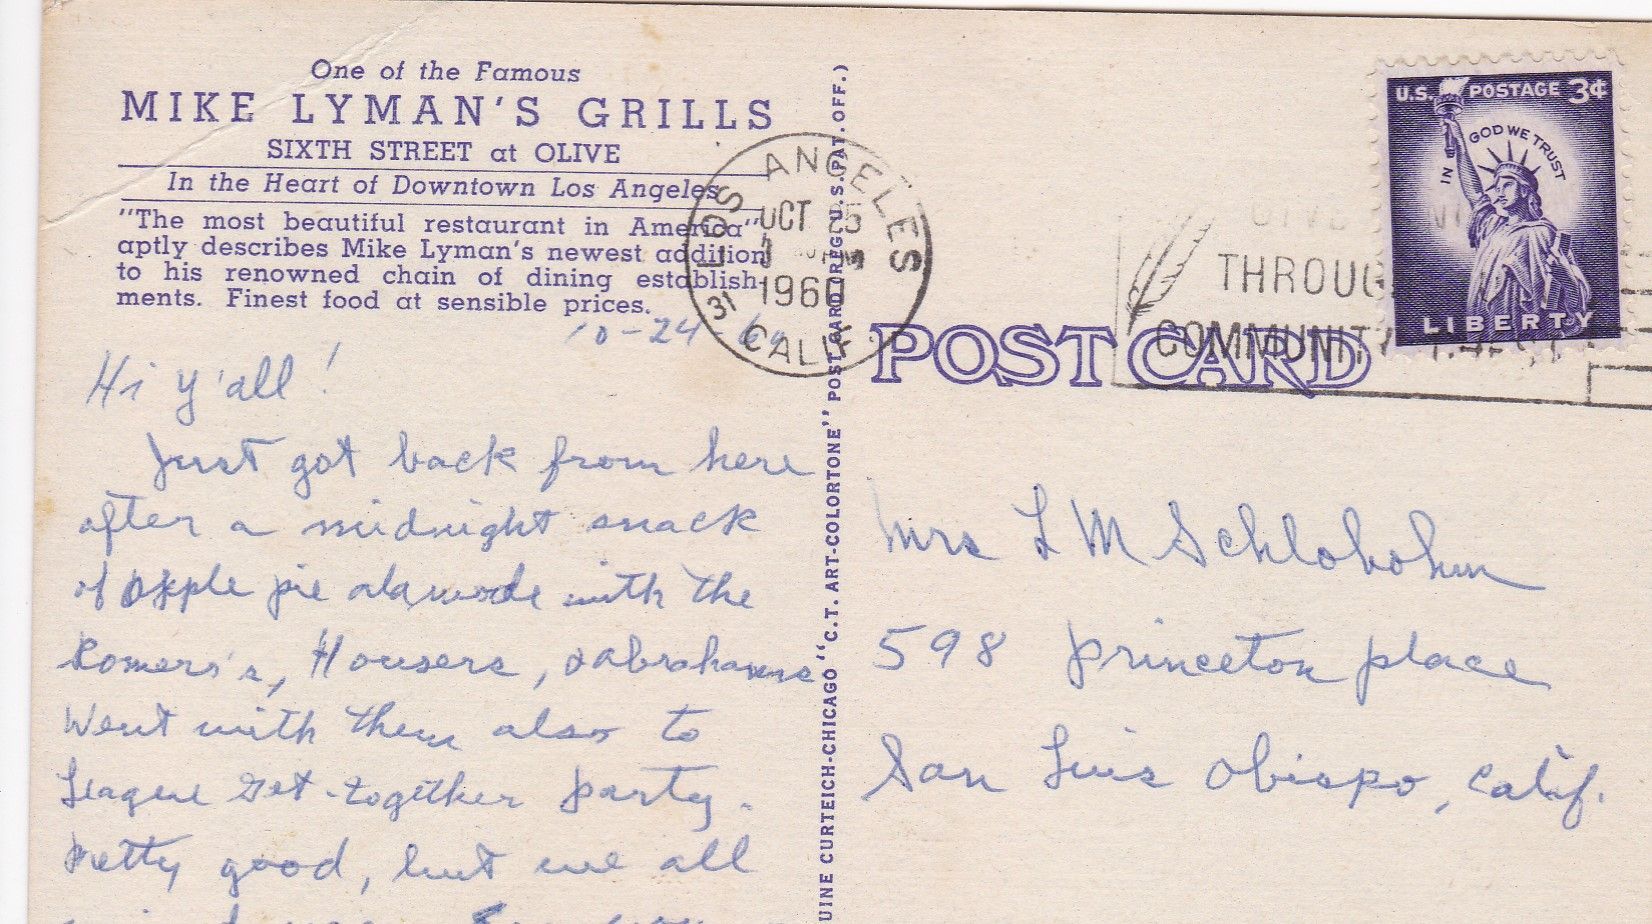 One of the Famous
MIKE LYMAN'S GRILLS
SIXTH STREET at OLIVE
In the Heart of Downtown Los Angeles
"The most beautiful restaurant in America"
aptly describes Mike Lyman's newest addition
to his renowned chain of dining establish-
ments. Finest food at sensible prices.
10-24-60
Hi y'all!
Just got back from here
after a midnight snack
of apple pie alamode with the
Romers's, Housers, & Abrahams
Went with them also to
League Get-together party.
Pretty good, but we all
UINE CURTEICH-CHICAGO "C.T. ART-COLORTONE" POST CARD (REG. U.S. PAT. OFF.)
LOS ANGELES
OCT 25
1960
31 CALIF.
THROUG
COMMUNITY
U.S. POSTAGE 3¢
IN GOD WE TRUST
LIBERTY
POST CARD
Mrs L M Schlobohm
598 Princeton Place
San Luis Obispo, Calif.